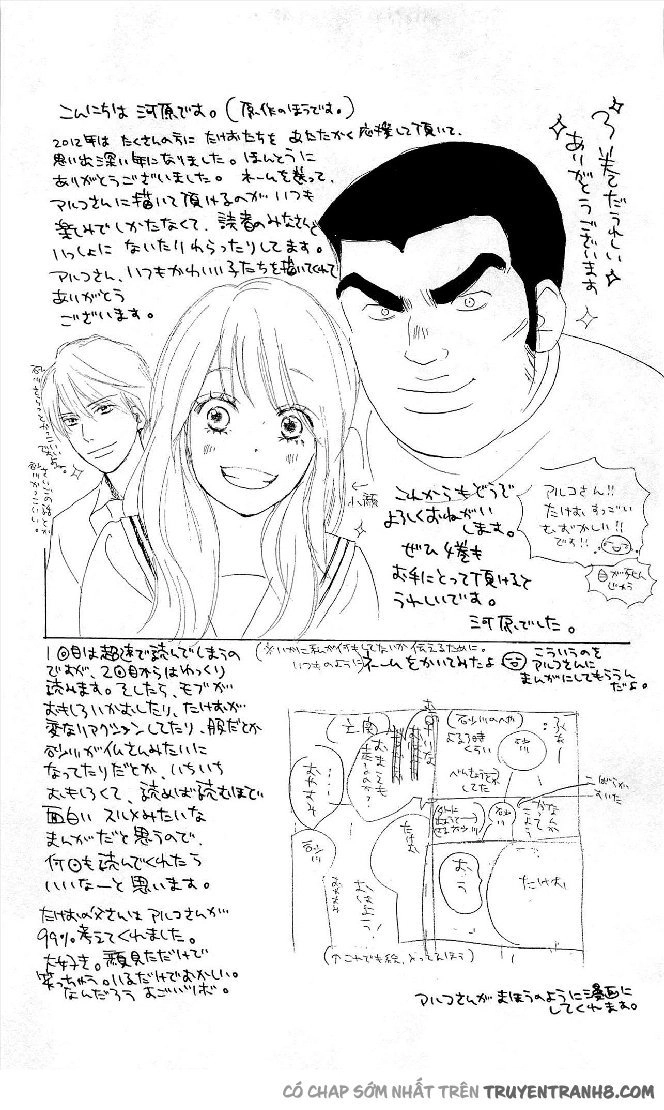 こんにちは 河原です。(原作のほうです。)
2012年は たくさんの方に たけおたちを あたたかく応援して頂いて、
思い出深い年になりました。ほんとうに
ありがとうございました。 ネームを送って、
アルコさんに描いて頂けるのがいつも
楽しみでしかたなくて、読者のみなさんと
いっしょに ないたりわらったりしてます。
アルコさん、いつもかわいい子たちを描いてくれて
ありがとう
ございます。
3巻でだうれしい
ありがとうございます
←
小顔
これからもどうぞ
よろしくおねがい
します。
ぜひ 4巻も
お手にとって頂けると
うれしいです。
河原でした。
アルコさん!!
たけお すっごい
むずかしい!!
です!!
1回目は超速で読んでしまうの
ですが、2回目からはゆっくり
読みます。そしたら、モブが
おもしろいかおしたり、たけおが
変なリアクションしてたり、服だとか
砂川がイムさんみたいに
なってたりだとか、いちいち
おもしろくて、読めば読むほど
面白い スルメみたいな
まんがだと思うので、
何回も読んでくれたら
いいなーと思います。
たけおの父さんは アルコさんが
99%考えてくれました。
大好き。顔見ただけで
笑っちゃう。いるだけでおかしい。
なんだろう すごいツボ。
いつものように ネームをかいてみたよ
こういうのを
アルコさんに
まんがにしてもらうん
だよ。
砂川のへや
よる9時
くらい
砂川
べんきょうを
してた
玄関
おまえも
おやすみ
砂川
たけお
おはよう!
おう
たけお
(↑これでも絵、とってえほう)
アルコさんが まほうのように漫画に
してくれます。
CÓ CHAP SỚM NHẤT TRÊN TRUYENTRANH8.COM